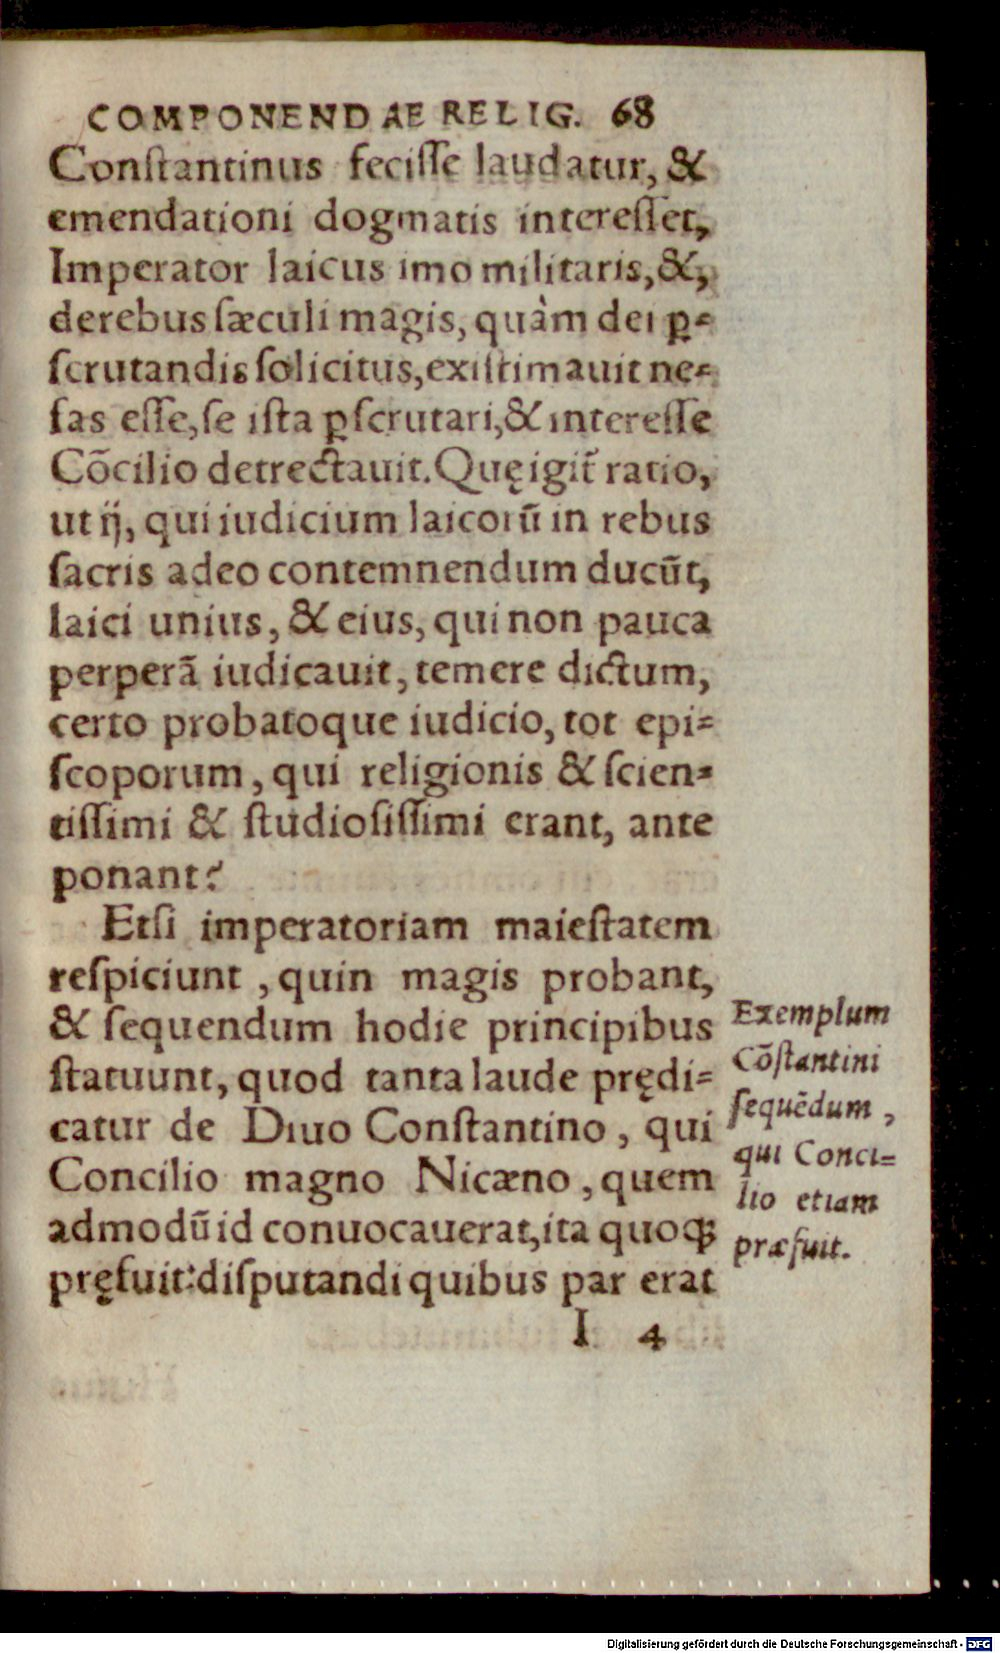 COMPONENDAE RELIG. 68
Conſtantinus feciſſe laudatur, &
emendationi dogmatis intereſſet,
Imperator laicus imo militaris, &,
derebus ſæculi magis, quàm dei ꝑ⸗
ſcrutandis ſolicitus, exiſtimauit ne⸗
fas eſſe, ſe iſta ꝑſcrutari, & intereſſe
Cõcilio detrectauit. Quę igit̃ ratio,
ut ij, qui iudicium laicorũ in rebus
ſacris adeo contemnendum ducũt,
laici unius, & eius, qui non pauca
perperã iudicauit, temere dictum,
certo probatoque iudicio, tot epi⸗
ſcoporum, qui religionis & ſcien⸗
tiſſimi & ſtudioſiſſimi erant, ante
ponant?
Etſi imperatoriam maieſtatem
reſpiciunt, quin magis probant,
& ſequendum hodie principibus
ſtatuunt, quod tanta laude prędi⸗
catur de Diuo Conſtantino, qui
Concilio magno Nicæno, quem
admodũ id conuocauerat, ita quoqꝫ
pręfuit: diſputandi quibus par erat
I 4
Exemplum
Cõſtantini
ſequẽdum,
qui Conci⸗
lio etiam
præfuit.
Digitalisierung gefördert durch die Deutsche Forschungsgemeinschaft - DFG